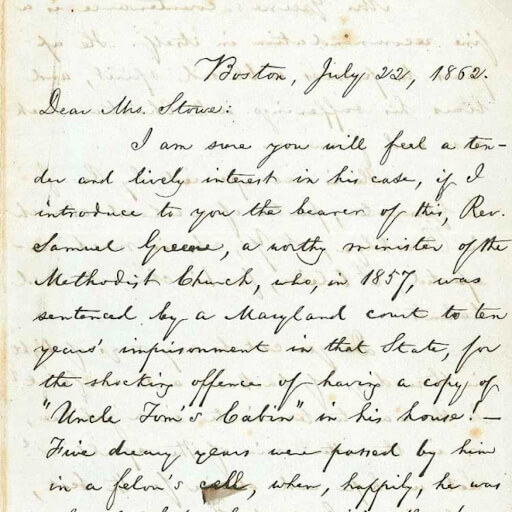 Boston, July 22, 1862.
Dear Mrs. Stowe:
I am sure you will feel a ten-
der and lively interest in his case, if I
introduce to you the bearer of this, Rev.
Samuel Greene, a worthy minister of the
Methodist Church, who, in 1857, was
sentenced by a Maryland court to ten
years' imprisonment in that State, for
the shocking offence of having a copy of
"Uncle Tom's Cabin" in his house! —
Five dreary years were passed by him
in a felon's cell, when, happily, he was